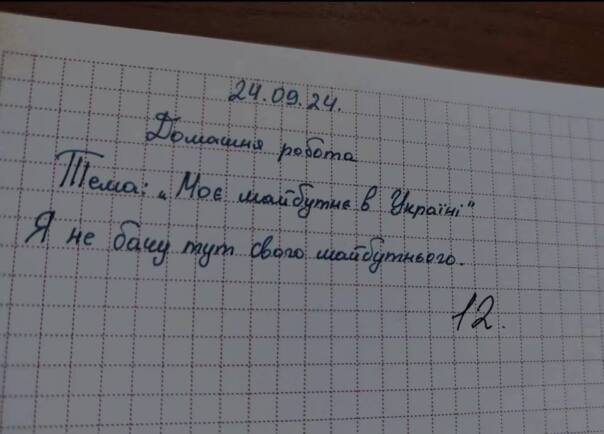 24.09.24.
Домашня робота
Тема: „Моє майбутнє в Україні"
Я не бачу тут свого майбутнього.
12.